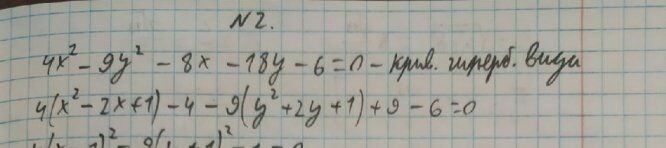 N2.
4x² - 9y² - 8x - 18y - 6 = 0 - крив. гиперб. вида
4(x² - 2x + 1) - 4 - 9(y² + 2y + 1) + 9 - 6 = 0